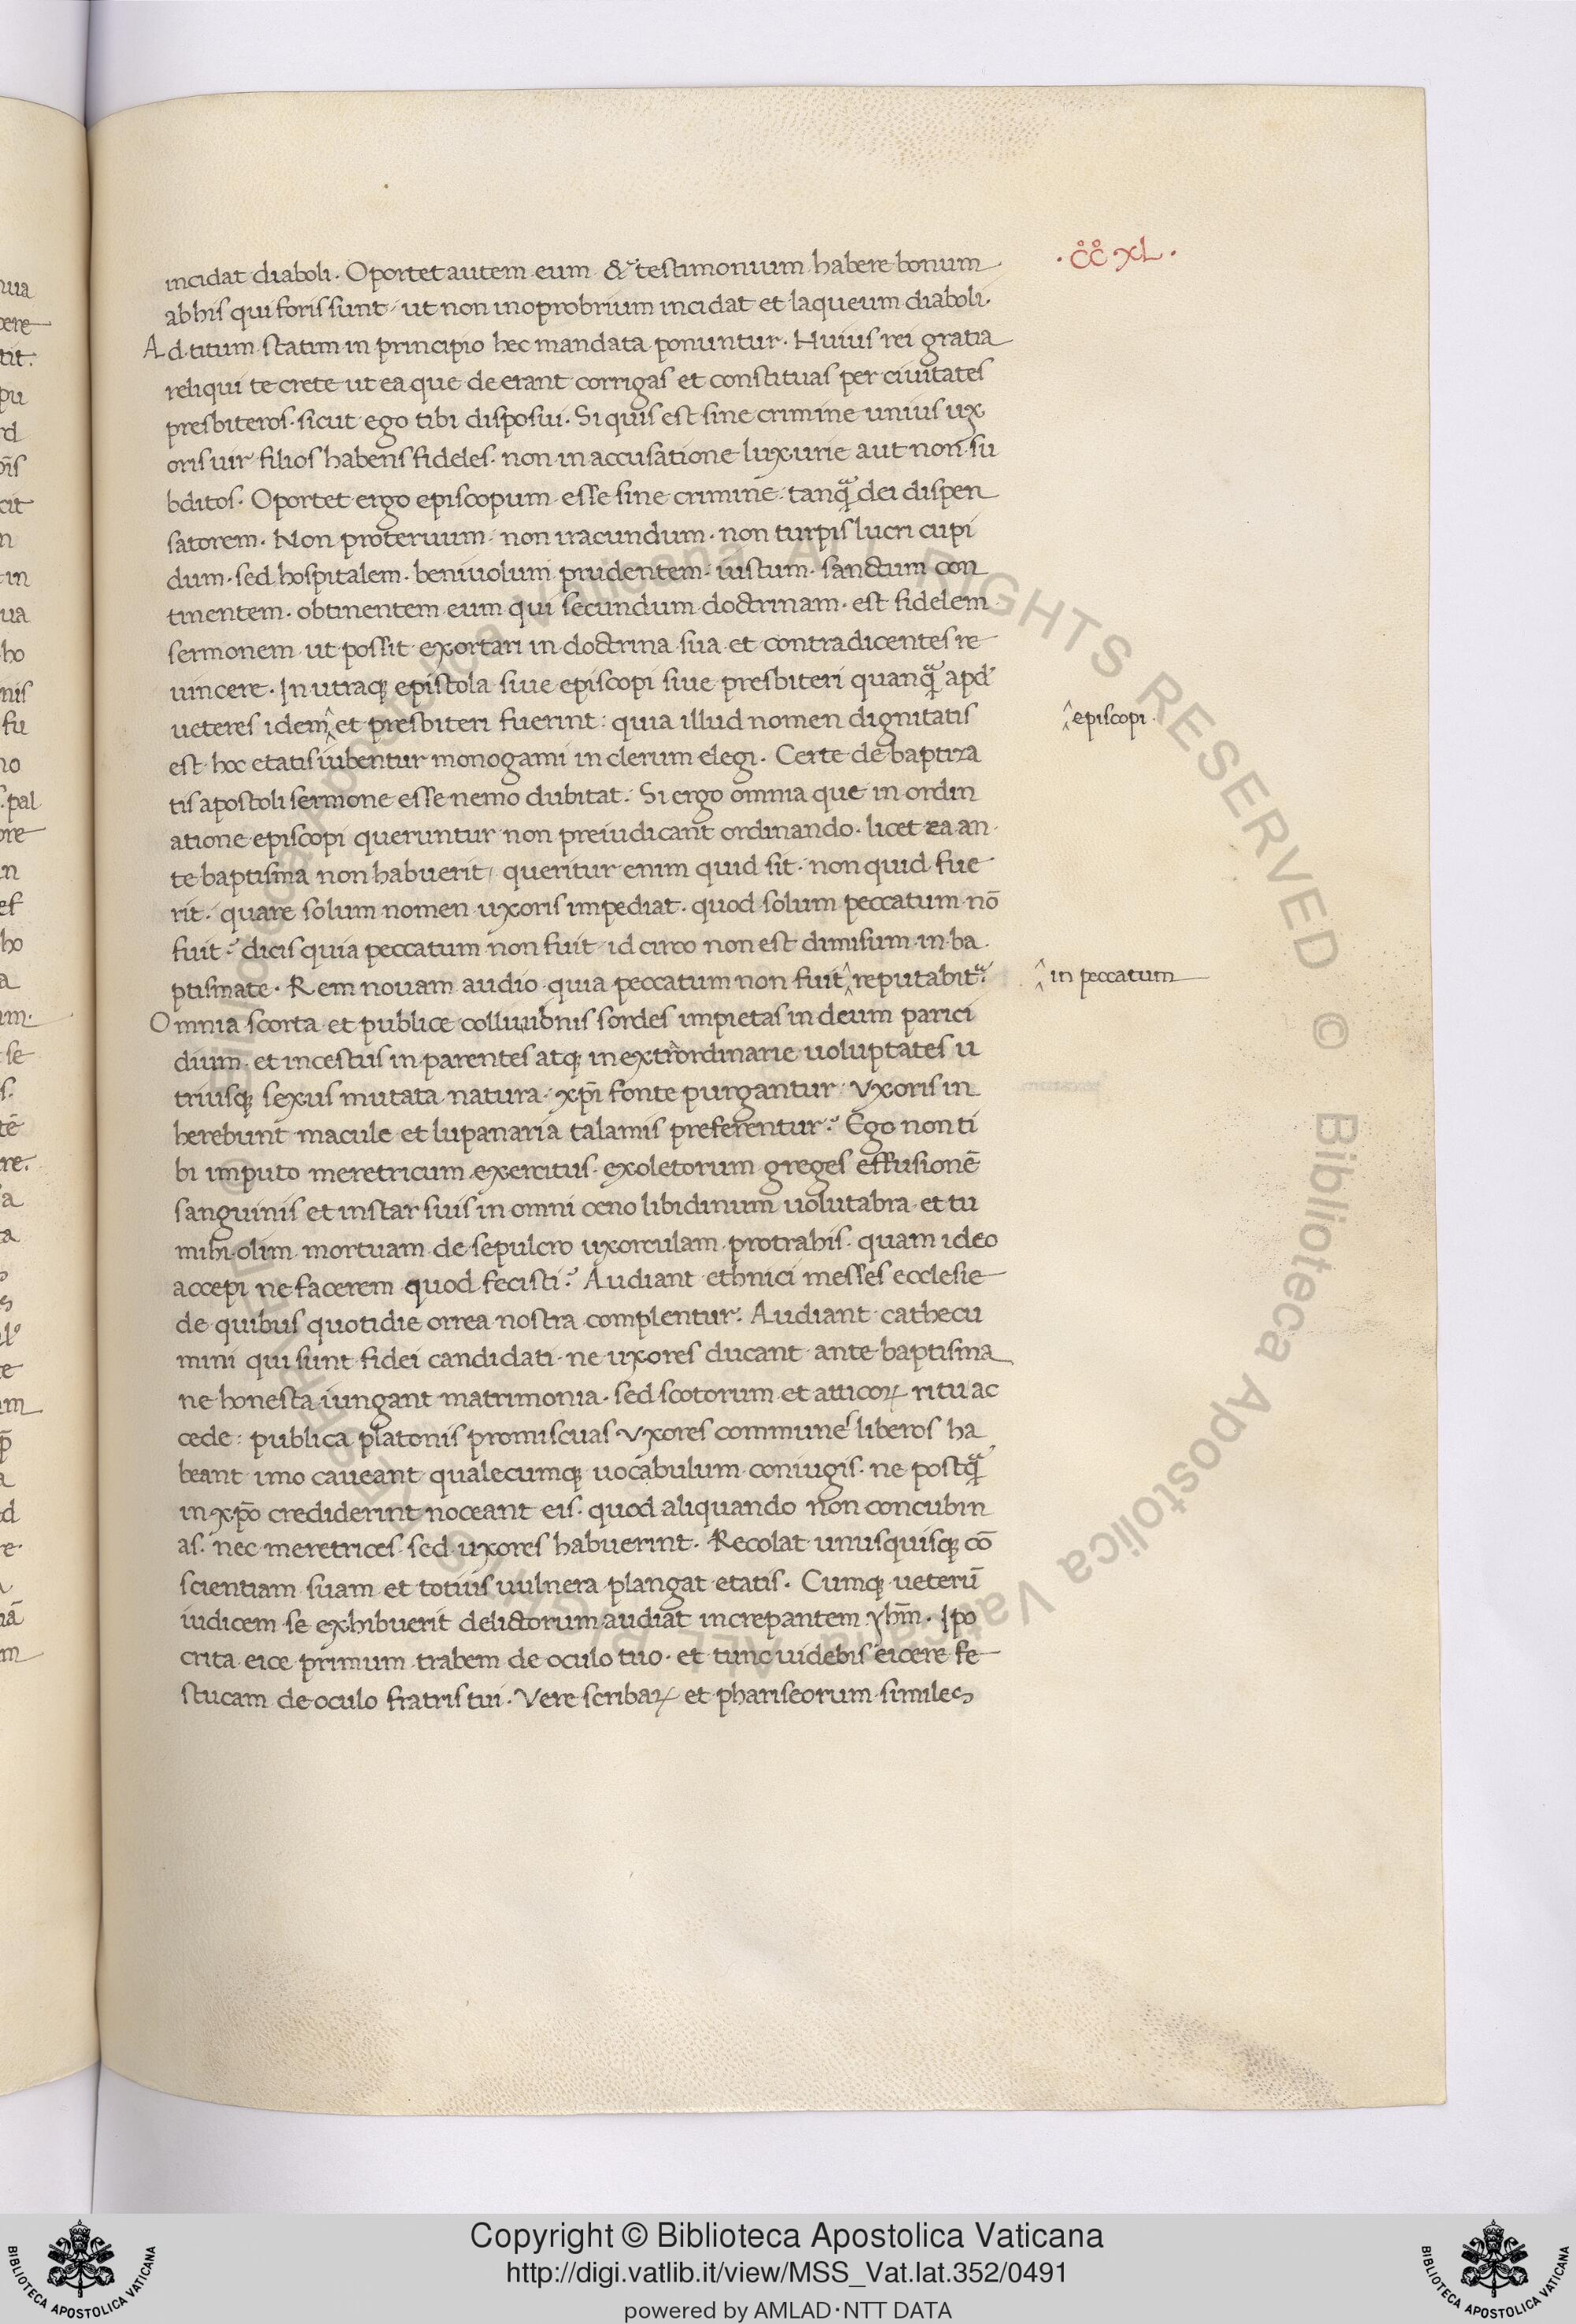 ·CC·XL·
incidat diaboli. Oportet autem eum & testimonium habere bonum
ab his qui foris sunt, ut non in oprobrium incidat et laqueum diaboli.
Ad titum statim in principio hec mandata ponuntur. Huius rei gratia
reliqui te crete ut ea que deerant corrigas et constituas per ciuitates
presbiteros. sicut ego tibi disposui. Si quis est sine crimine unius ux
oris uir filios habens fideles. non in accusatione luxurie aut non su
bditos. Oportet ergo episcopum esse sine crimine: tanqᷓ dei dispen
satorem. Non proteruum. non iracundum. non turpis lucri cupi
dum. sed hospitalem. beniuolum prudentem. iustum. sanctum con
tinentem. obtinentem eum qui secundum doctrinam. est fidelem
sermonem ut possit exortari in doctrina sua et contradicentes re
uincere. In utraqꝫ epistola siue episcopi siue presbiteri quanqᷓ apd'
ueteres idem ^ et presbiteri fuerint: quia illud nomen dignitatis
^ episcopi.
est hoc etatis iubentur monogami in clerum elegi. Certe de baptiza
tis apostoli sermone esse nemo dubitat. Si ergo omnia que in ordin
atione episcopi queruntur non preiudicant ordinando. licet ea an
te baptisma non habuerit, queritur enim quid sit. non quid fue
rit. quare solum nomen uxoris impediat. quod solum peccatum nō
fuit? dicis quia peccatum non fuit id circo non est dimisum in ba
ptismate. Rem nouam audio quia peccatum non fuit ^ reputabit᷑?
^ in peccatum
Omnia scorta et publice colluuionis sordes impietas in deum parici
dium. et incestus in parentes atqꝫ in extrordinarie uoluptates u
triusqꝫ sexus mutata natura. xp̄i fonte purgantur. Vxoris in
herebunt macule et lupanaria talamis preferentur? Ego non ti
bi imputo meretricum exercitus. exoletorum greges effusionē
sanguinis et instar suis in omni ceno libidinum uolutabra et tu
mihi olim mortuam de sepulcro uxorculam protrahis. quam ideo
accepi ne facerem quod fecisti? Audiant ethnici messes ecclesie
de quibus quotidie orrea nostra complentur. Audiant cathecu
mini qui sunt fidei candidati. ne uxores ducant ante baptisma
ne honesta iungant matrimonia. sed scotorum et atticoꝝ ritu ac
cede: publica platonis promiscuas Vxores communes liberos ha
beant imo caueant qualecumqꝫ uocabulum coniugis. ne postqᷓ
in xp̄o crediderint noceant eis. quod aliquando non concubin
as. nec meretrices sed uxores habuerint. Recolat unusquisqꝫ cō
scientiam suam et totius uulnera plangat etatis. Cumqꝫ ueterū
iudicem se exhibuerit delictorum audiat increpantem yhm̄. Ipo
crita eice primum trabem de oculo tuo. et tunc uidebis eicere fe
stucam de oculo fratris tui. Vere scribaꝝ et phariseorum similes
Copyright © Biblioteca Apostolica Vaticana
http://digi.vatlib.it/view/MSS_Vat.lat.352/0491
powered by AMLAD·NTT DATA